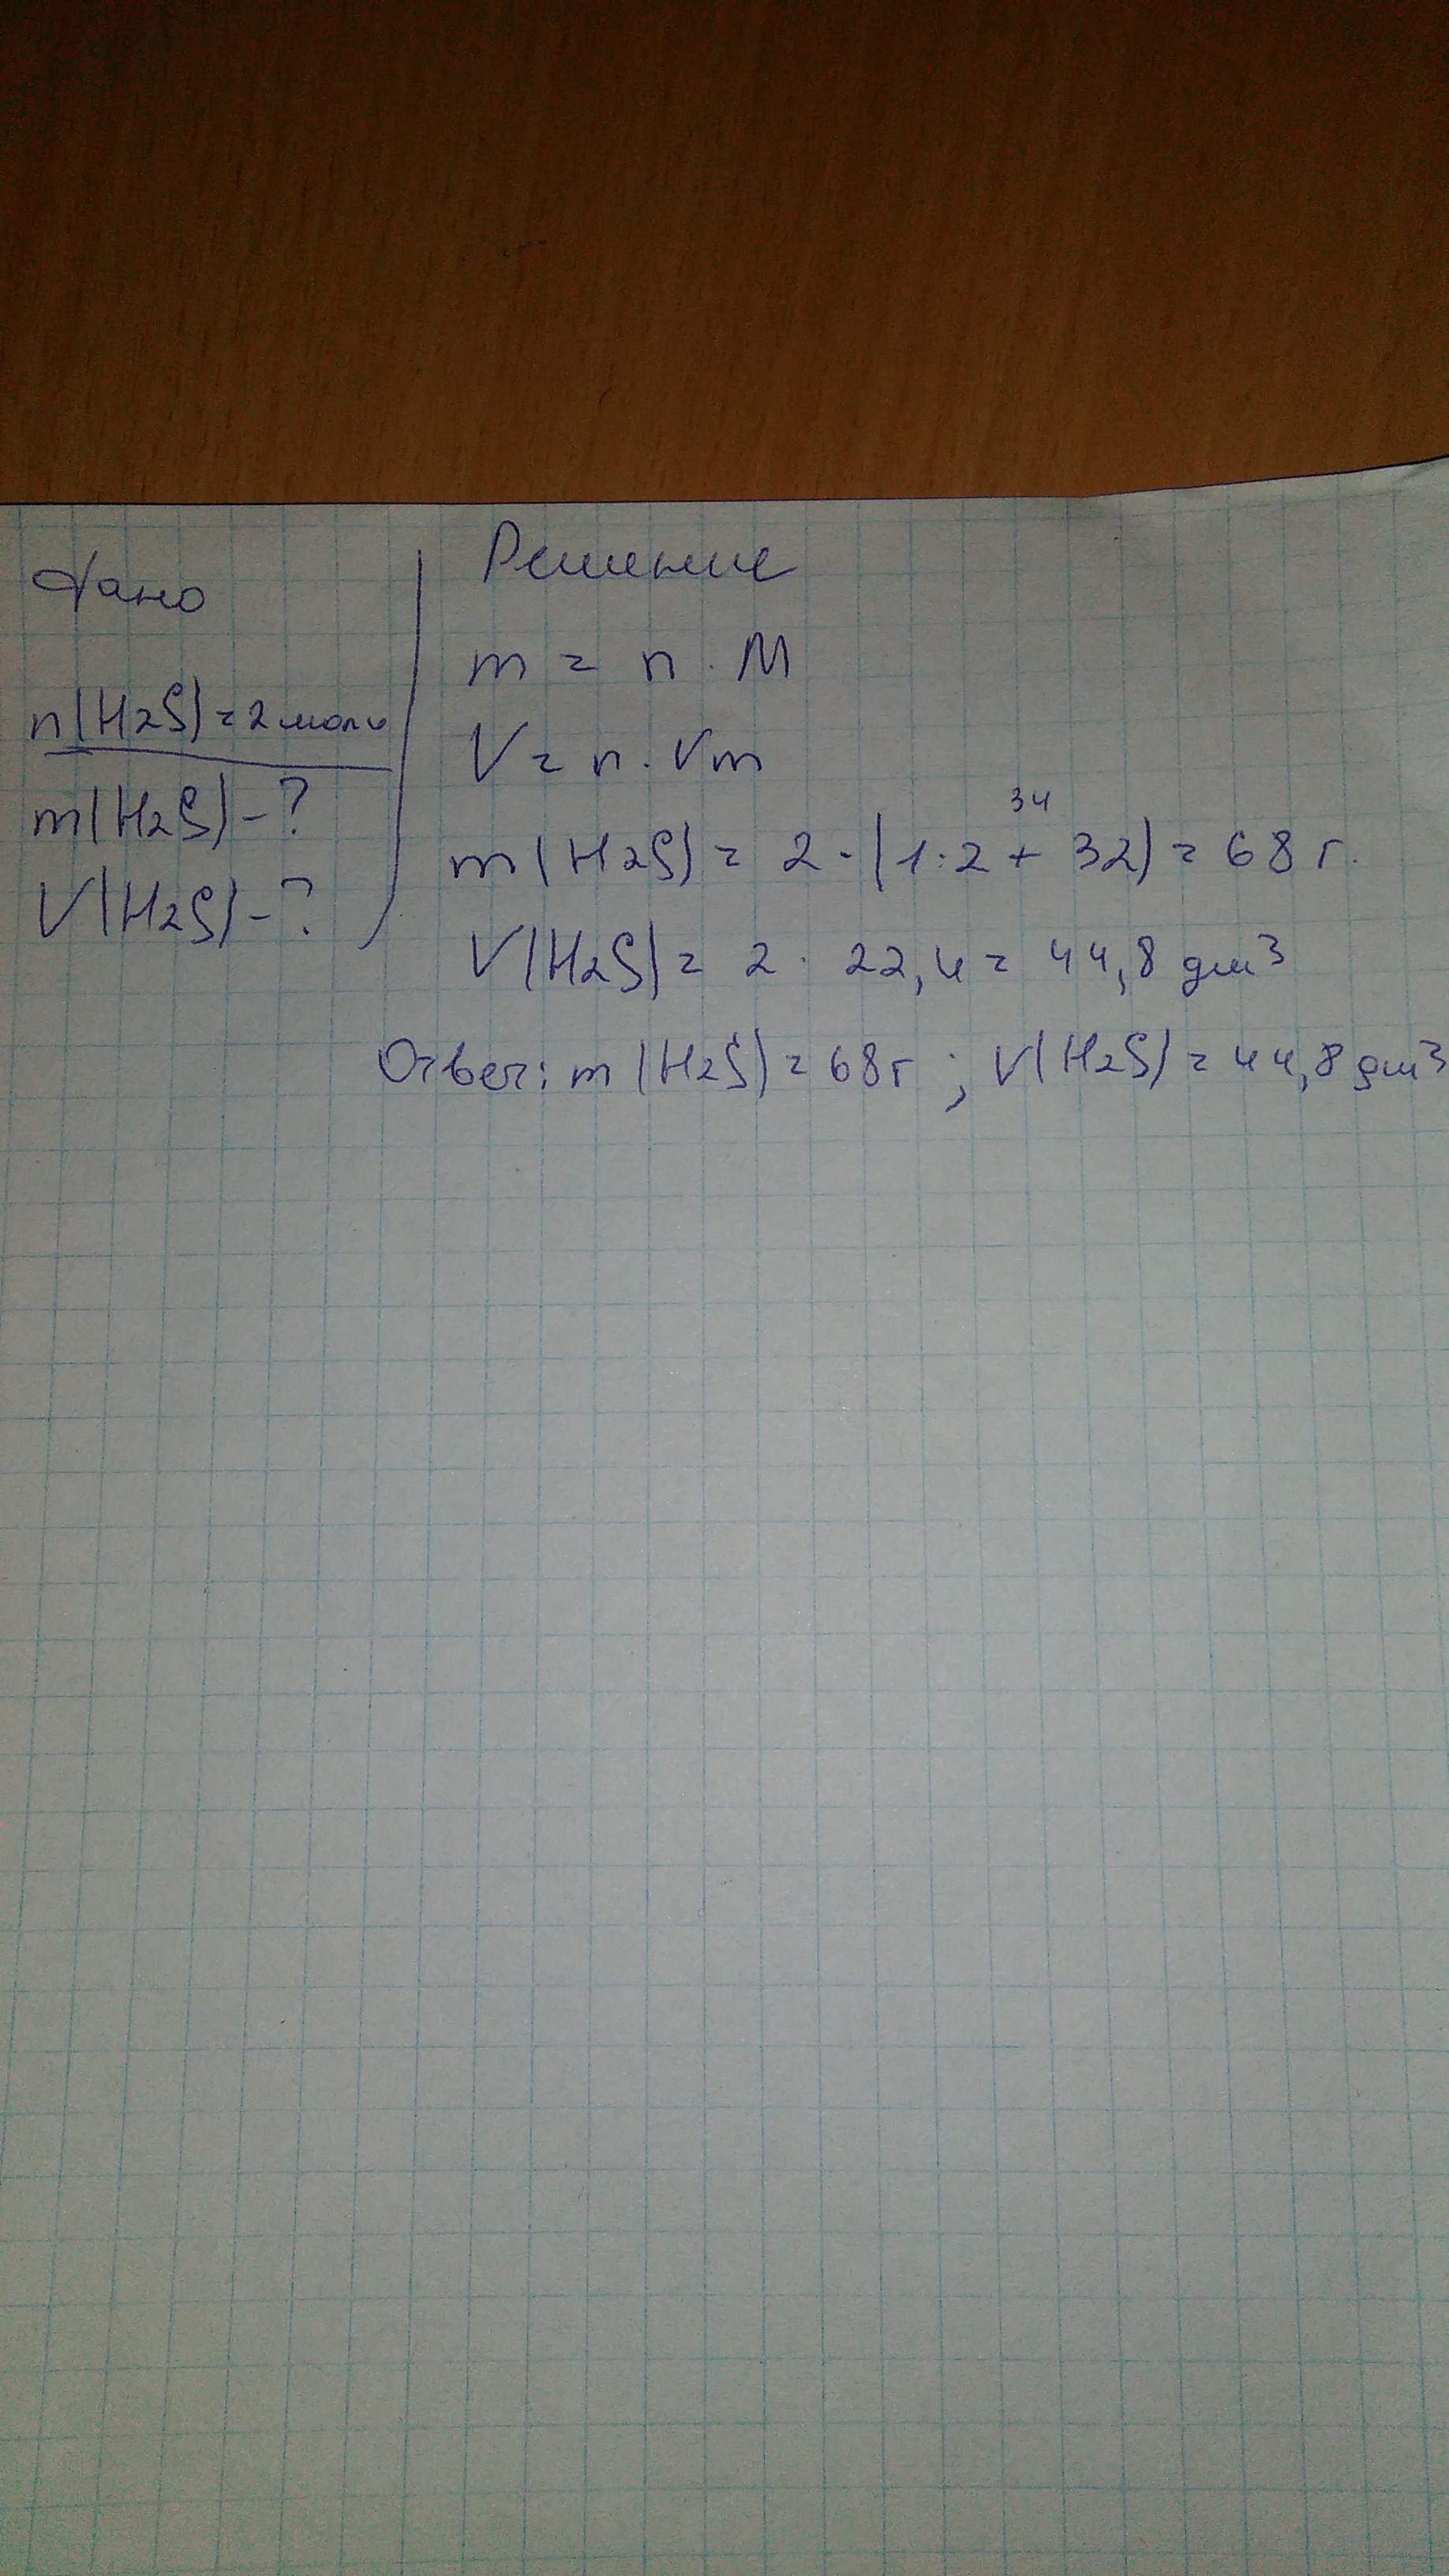 Дано
n(H2S)=2моль
m(H2S)-?
V(H2S)-?
Решение
m = n · M
V = n · Vm
34
m(H2S) = 2 · (1·2 + 32) = 68 г.
V(H2S) = 2 · 22,4 = 44,8 дм3
Ответ: m(H2S) = 68г ; V(H2S) = 44,8 дм3